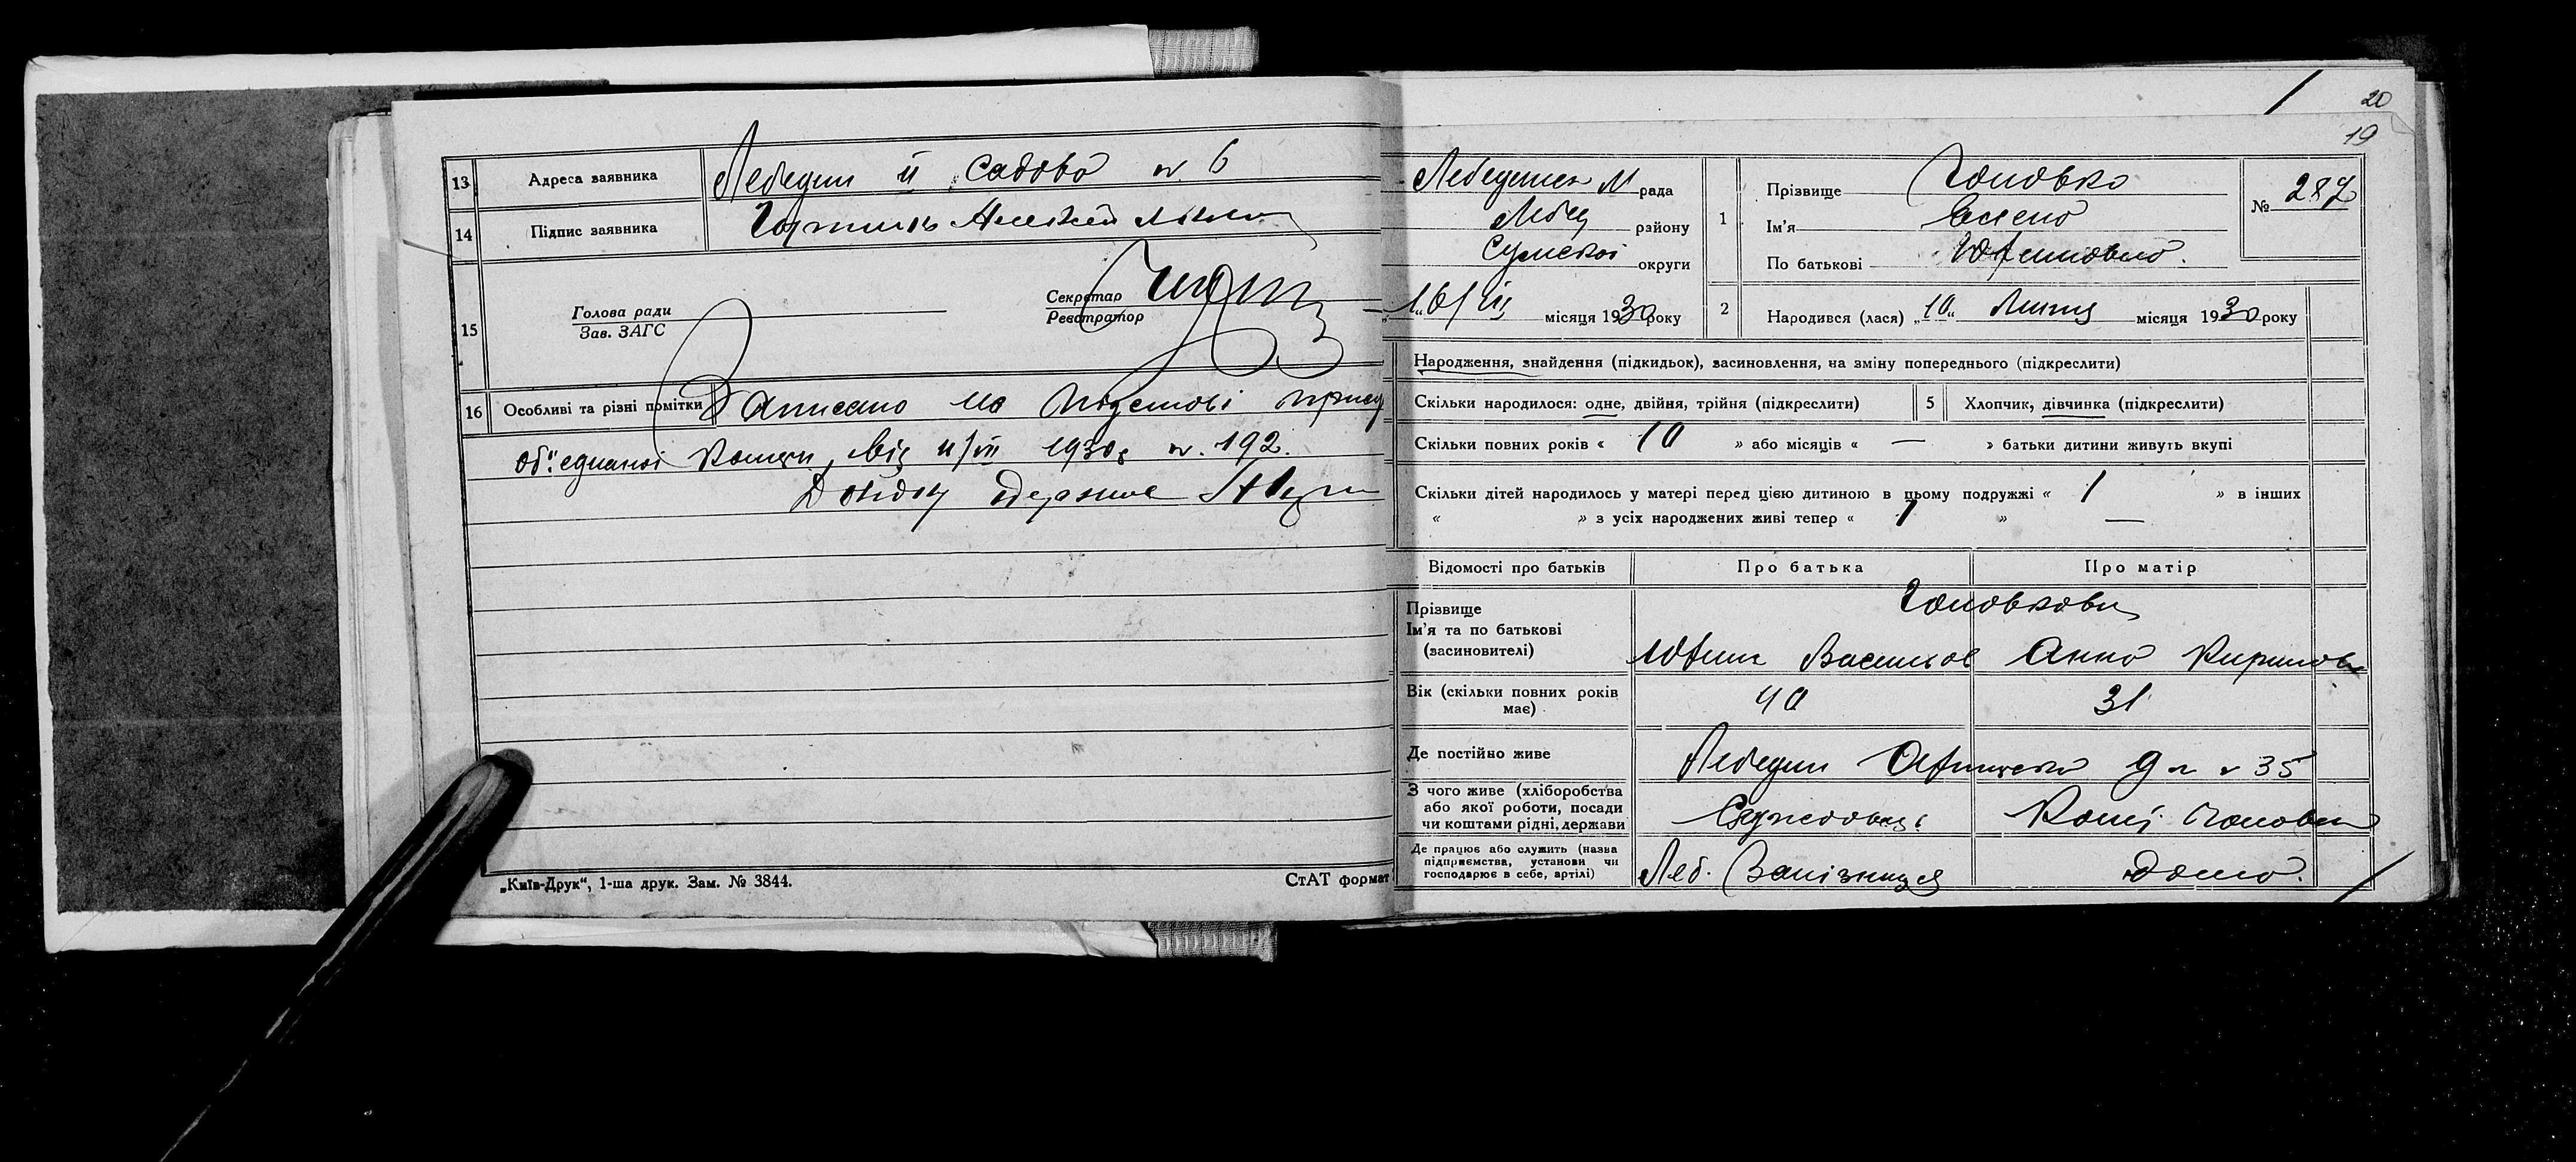 13 Адреса заявника Лебедин II Садова № 6
14 Підпис заявника
15 Голова ради
Зав. ЗАГС
Секретар
Реєстратор
16 Особливі та різні помітки Записано на підставі
об'єднаної від 11/VII 1930 р. № 192.
Довідку одержав
„Київ-Друк“, 1-ша друк. Зам. № 3844. СтАТ формат
20
19
рада
району
Сумської округи
16/VII місяця 1930 року
1 Прізвище Головко
Ім'я Єлена
По батькові Юхимовна.
№ 287
2 Народився (лася) „10“ Липня місяця 1930 року
Народження, знайдення (підкидьок), засиновлення, на зміну попереднього (підкреслити)
Скільки народилося: одне, двійня, трійня (підкреслити) 5 Хлопчик, дівчинка (підкреслити)
Скільки повних років « 10 » або місяців « — » батьки дитини живуть вкупі
Скільки дітей народилось у матері перед цією дитиною в цьому подружжі « 1 » в інших
« » з усіх народжених живі тепер « 1 » —
Відомості про батьків Про батька Про матір
Прізвище
Ім'я та по батькові
(засиновителі)
Головкови
Юхим Васильов Анна Кирилов
Вік (скільки повних років має) 40 31
Де постійно живе Лебедин № 35
З чого живе (хліборобства
або якої роботи, посади
чи коштами рідні, держави
Службовець Кошт. чоловіка
Де працює або служить (назва
підприємства, установи чи
господарює в себе, артілі)
Леб. Залізниця Дома.